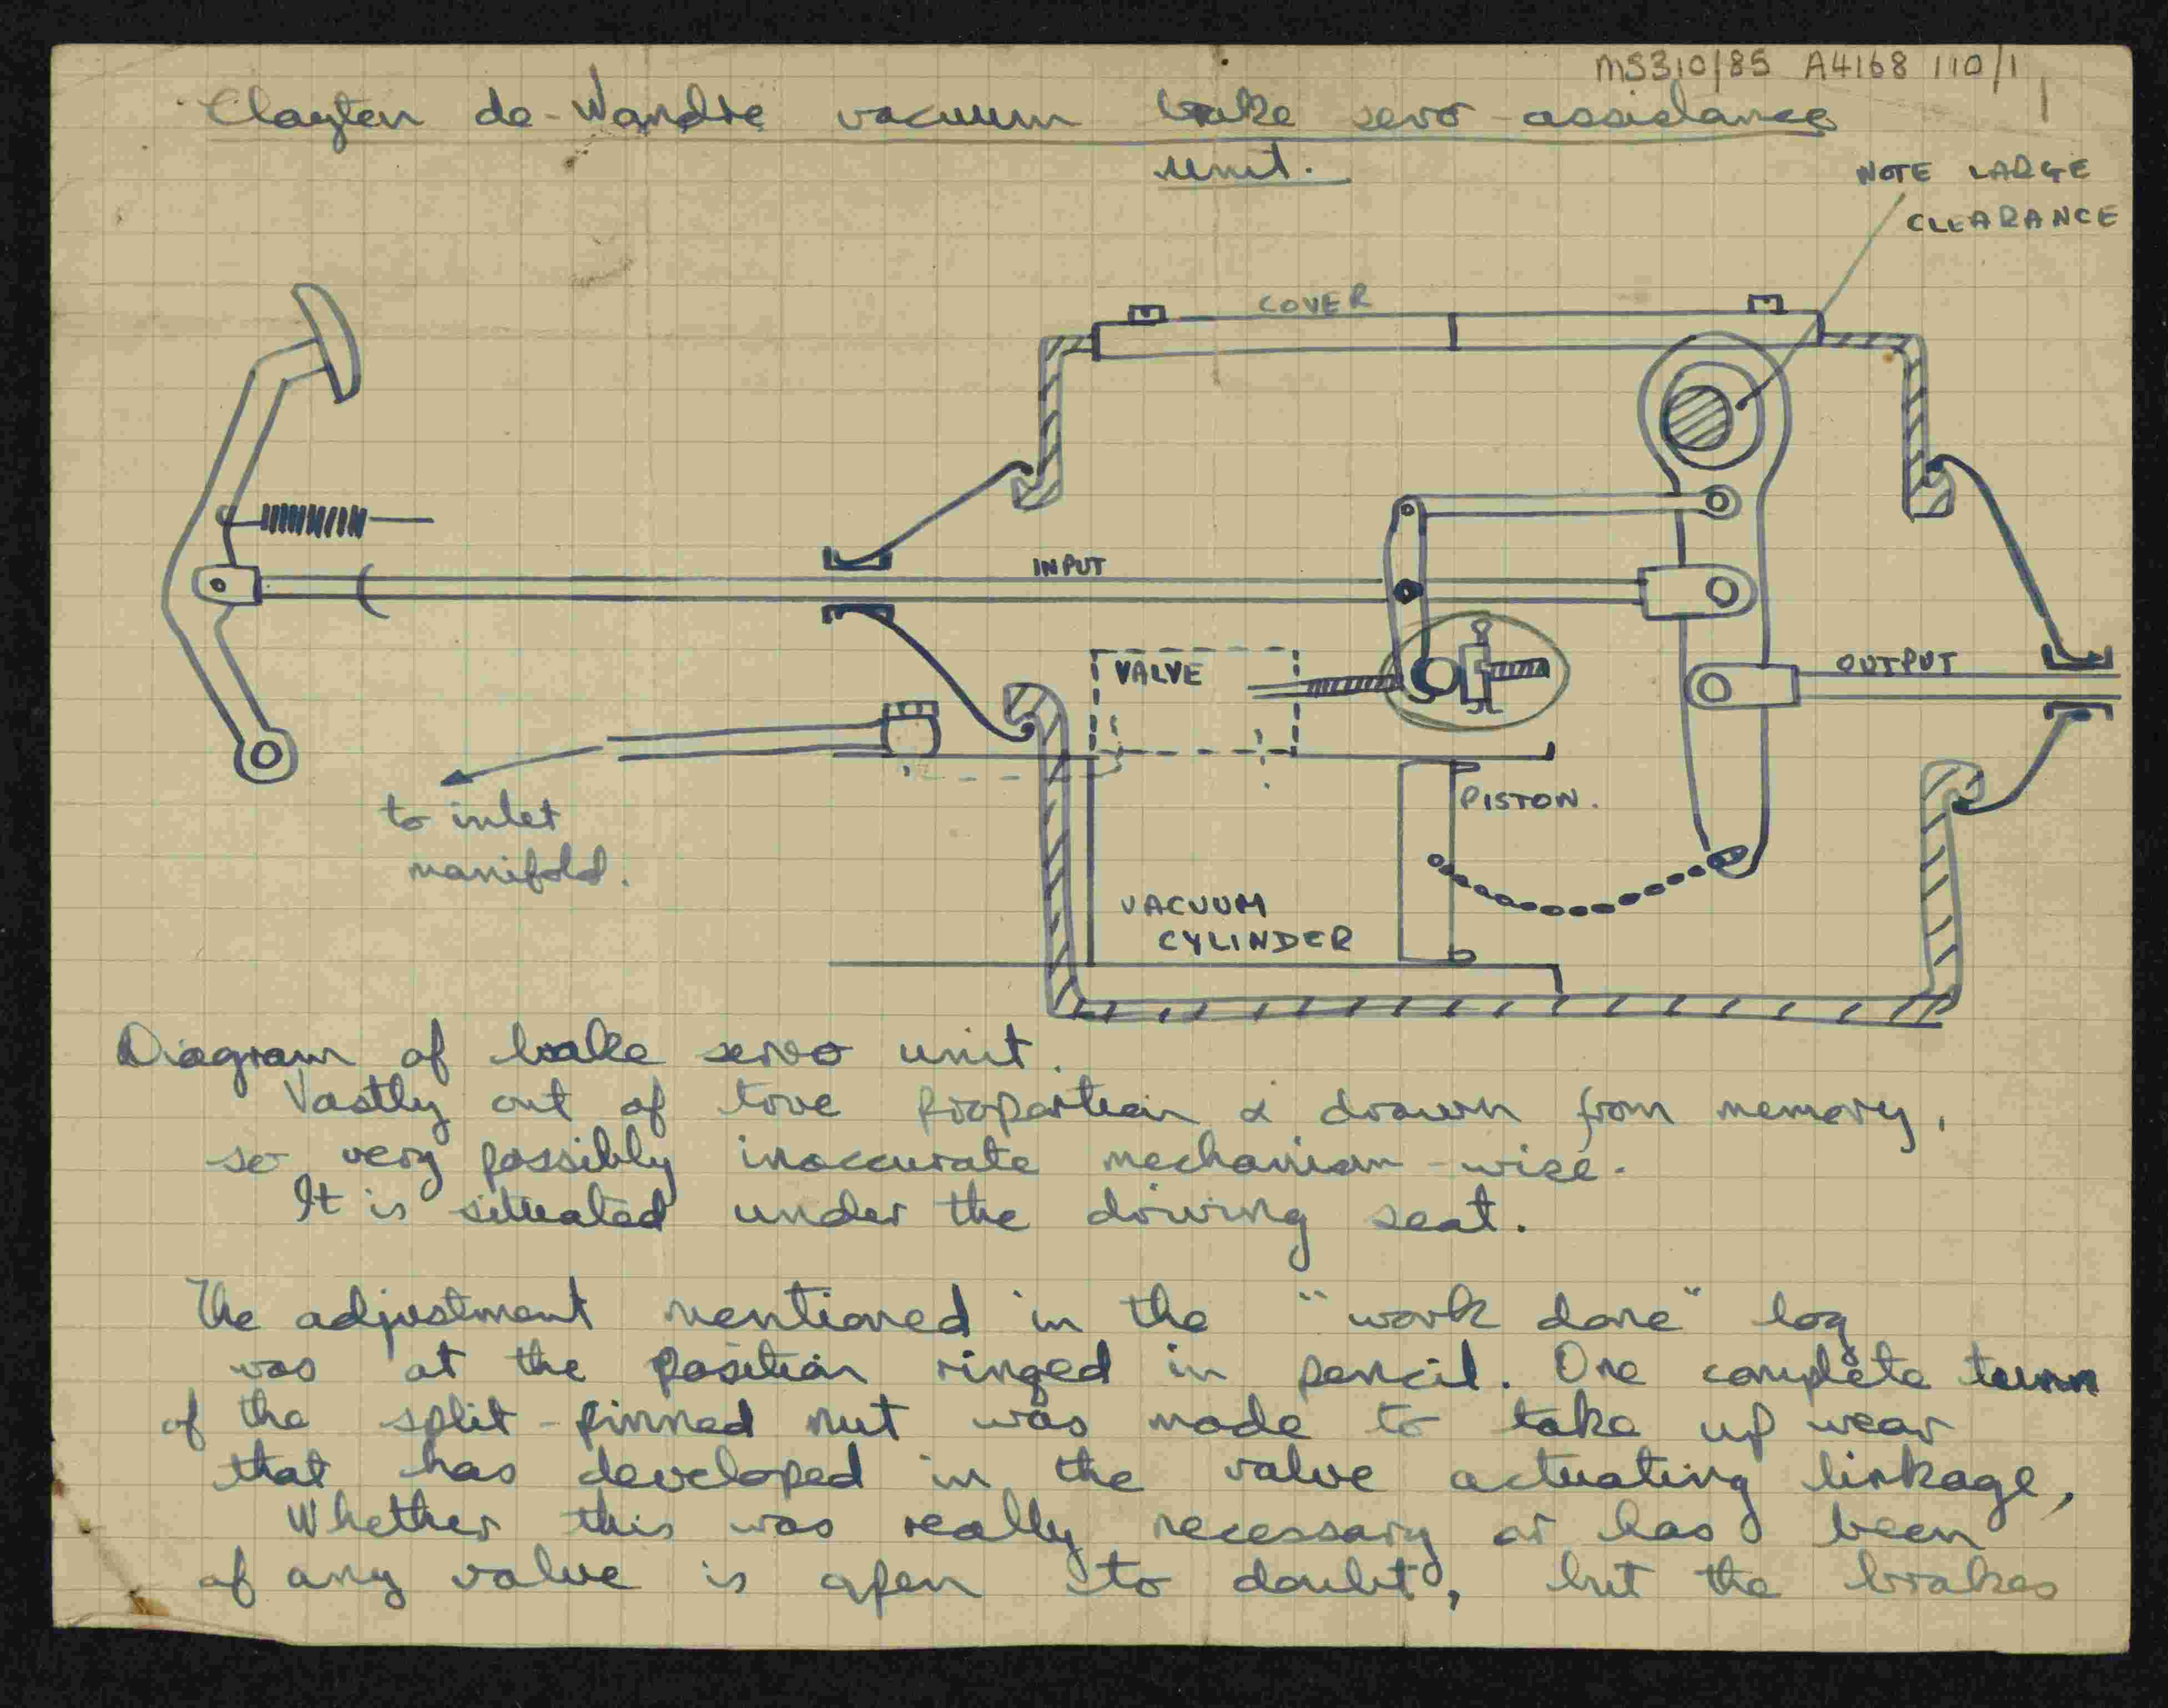 MS310/85 A4168 110/1
Clayton de-Wandre vacuum brake servo assistance
unit.
NOTE LARGE
CLEARANCE
COVER
INPUT
VALVE
OUTPUT
to inlet
manifold.
PISTON.
VACUUM
CYLINDER
Diagram of brake servo unit.
Vastly out of true proportion & drawn from memory,
so very possibly inaccurate mechanism-wise.
It is situated under the driving seat.
The adjustment mentioned in the "work done" log
was at the position ringed in pencil. One complete turn
of the split-pinned nut was made to take up wear
that has developed in the valve actuating linkage,
Whether this was really necessary or has been
of any value is open to doubt, but the brakes